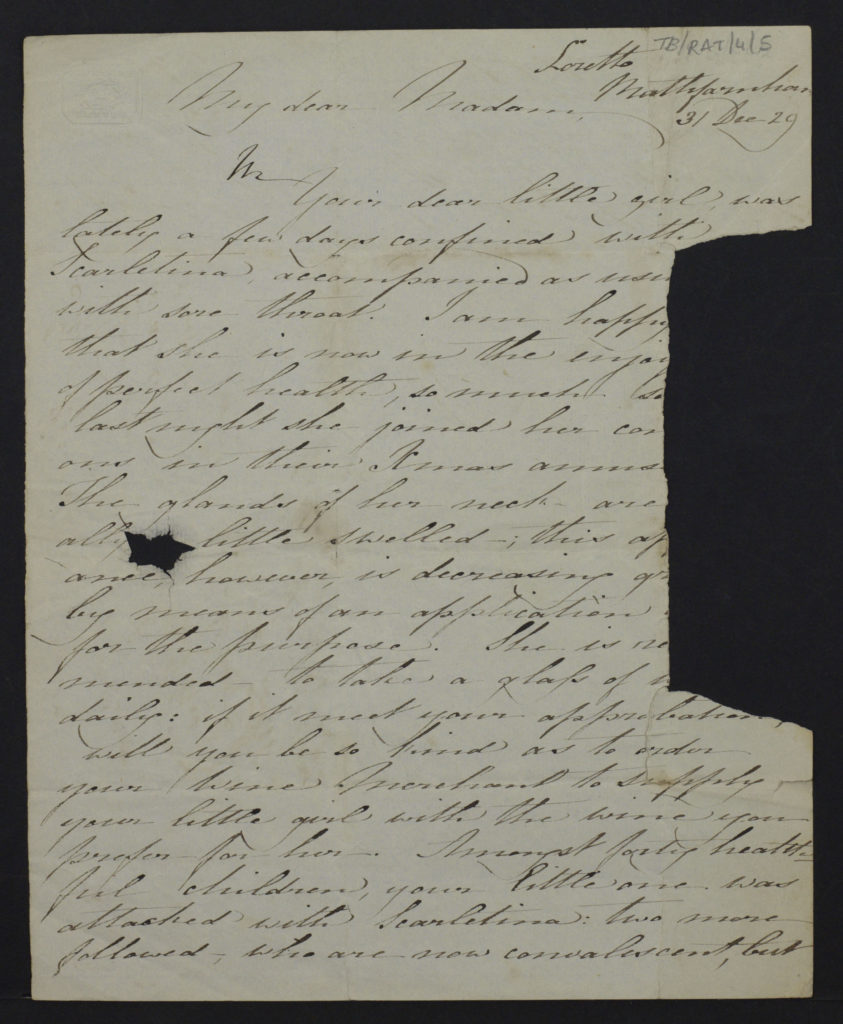 TB/RAT/4/5
Loretto
Rathfarnham
31 Dec 29
My dear Madam,
Your dear little girl, was
lately a few days confined with
Scarletina, accompanied as usu
with sore throat. I am happy
that she is now in the enjoy
of perfect health, so much so
last night she joined her com
ons in their Xmas amuse
The glands of her neck are
ally little swelled; this ap
ance, however, is decreasing gr
by means of an application
for the purpose. She is re
mended to take a glass of w
daily: if it meet your approbation,
will you be so kind as to order
your Wine Merchant to supply
your little girl with the wine you
prefer for her. Amongst forty health
ful children, your little one was
attacked with Scarletina: two more
followed, who are now convalescent, but